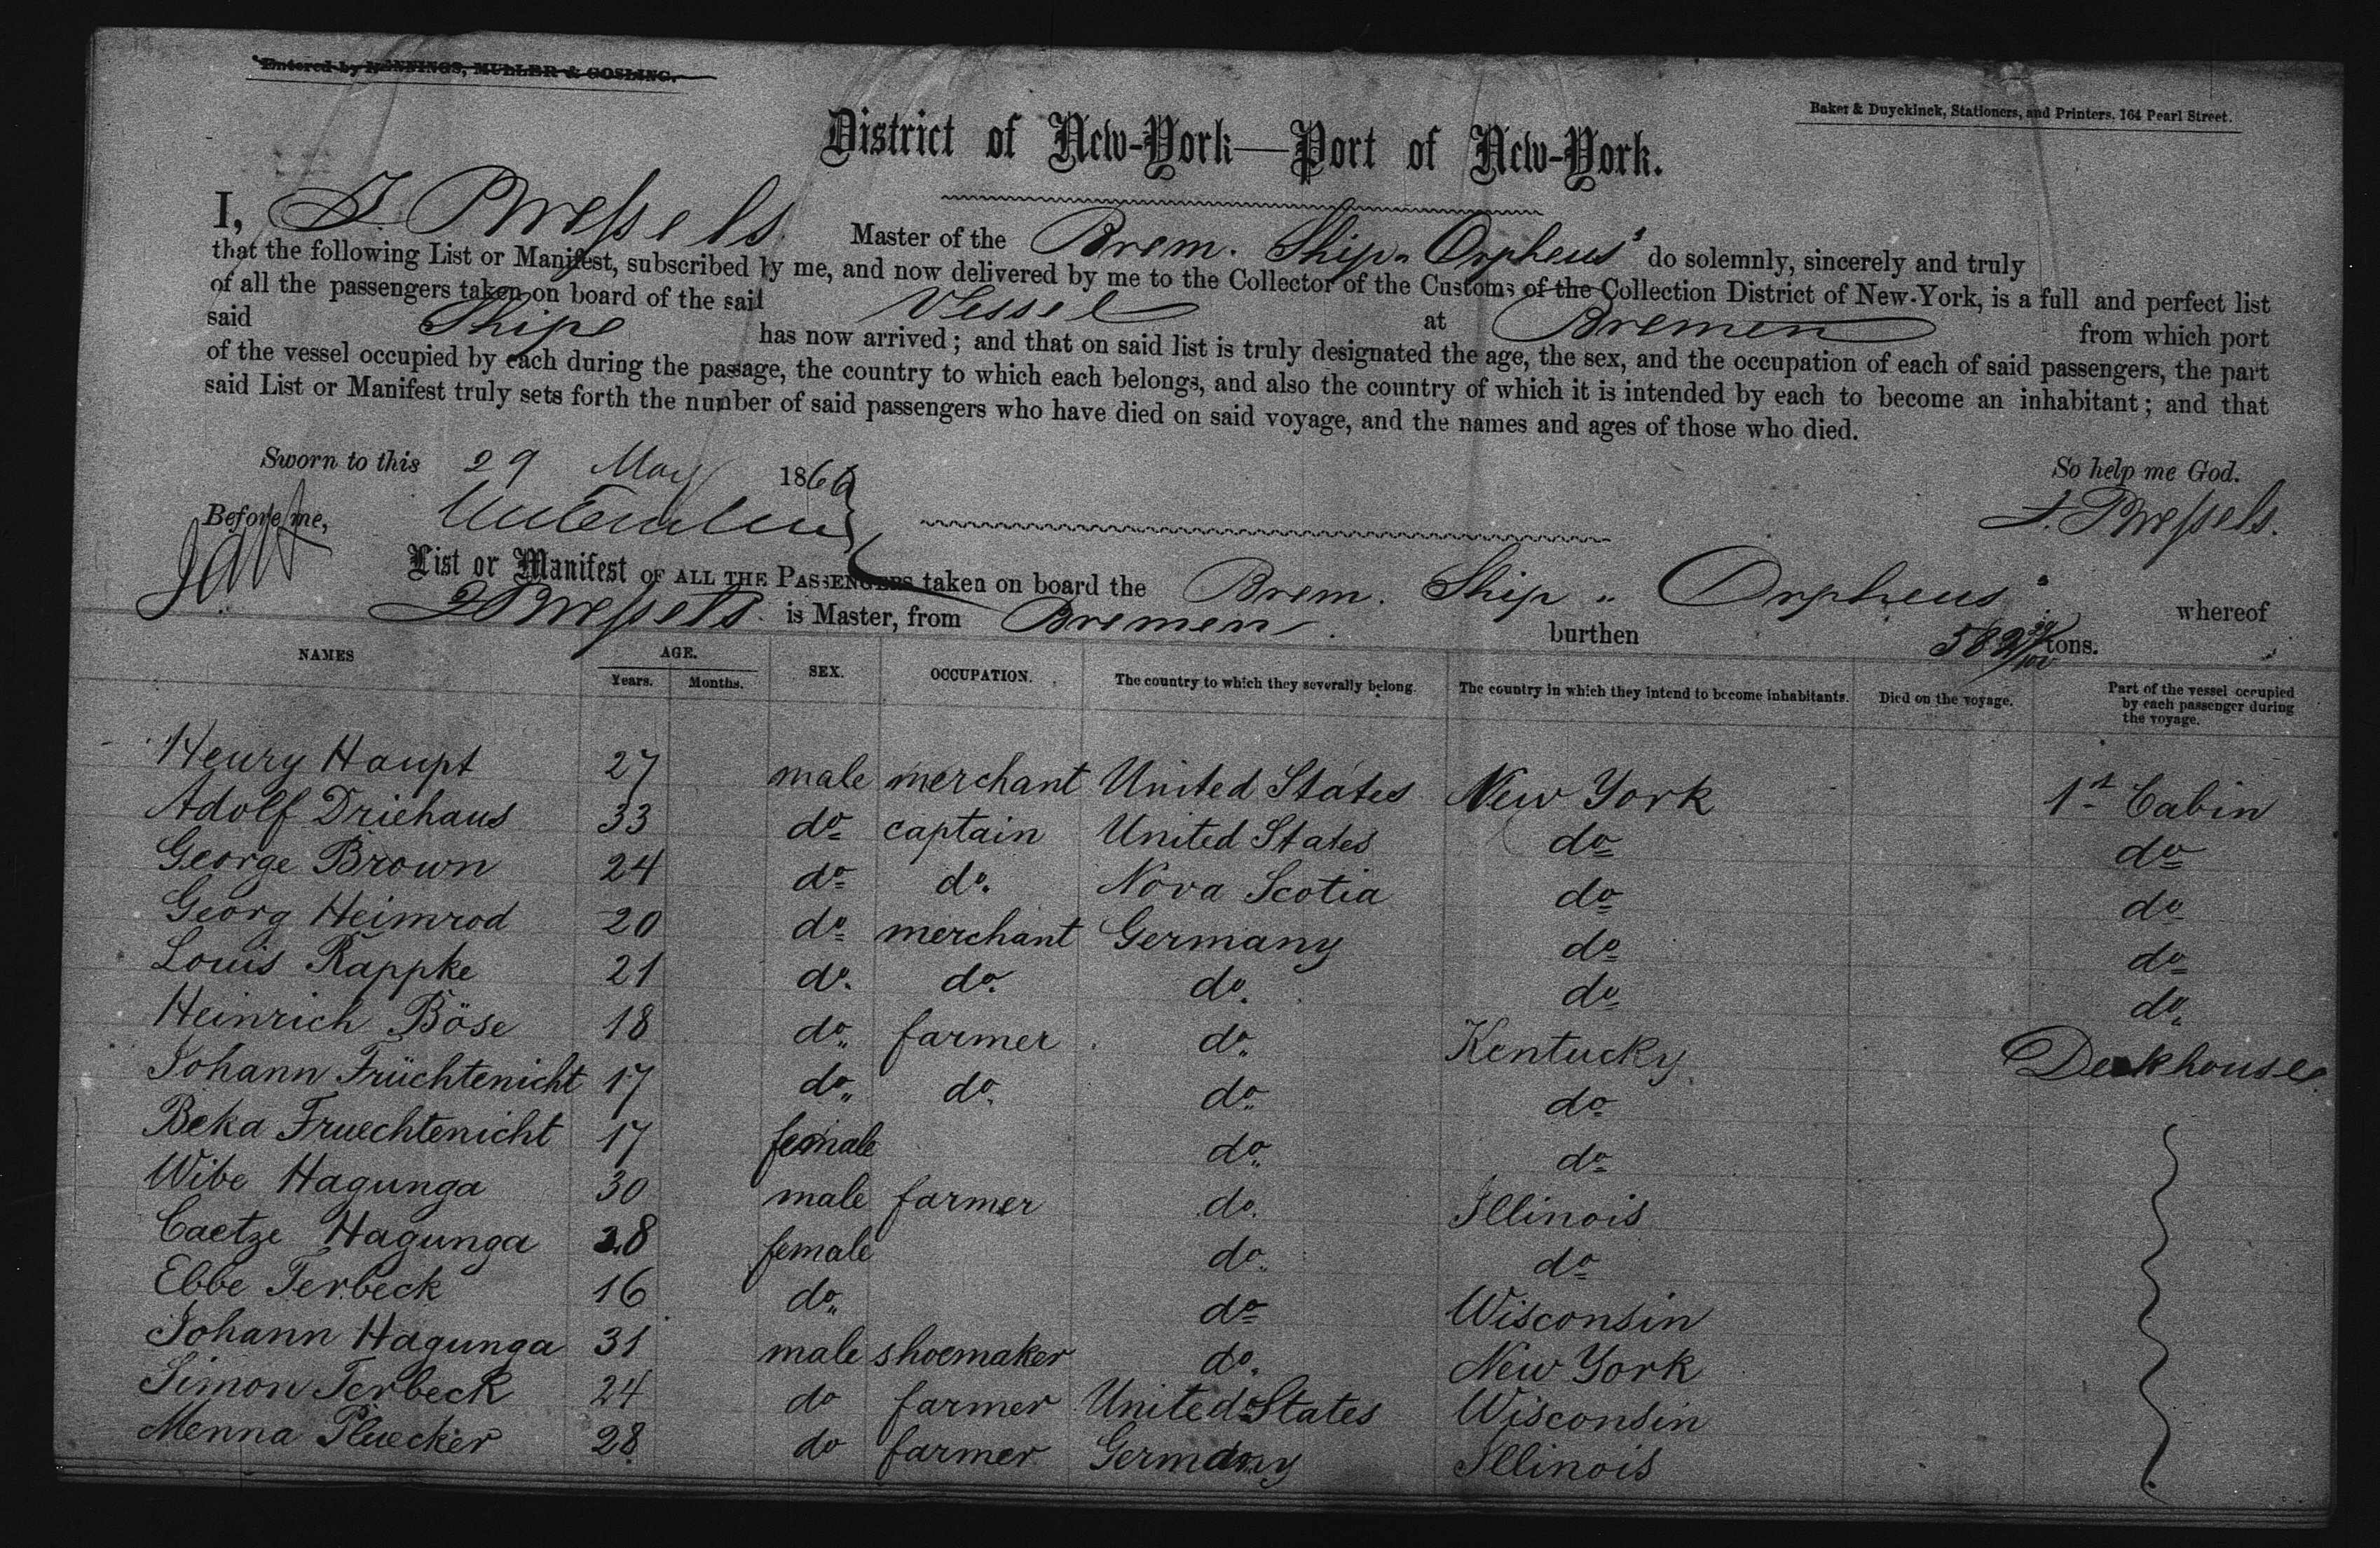 Entered by HENNINGS, MULLER & GOSLING.
Baker & Duyckinck, Stationers, and Printers, 164 Pearl Street.
District of New-York—Port of New-York.
I, Wessels Master of the Brem. Ship "Orpheus" do solemnly, sincerely and truly
that the following List or Manifest, subscribed by me, and now delivered by me to the Collector of the Customs of the Collection District of New-York, is a full and perfect list
of all the passengers taken on board of the said Vessel at Bremen from which port
said Ship has now arrived; and that on said list is truly designated the age, the sex, and the occupation of each of said passengers, the part
of the vessel occupied by each during the passage, the country to which each belongs, and also the country of which it is intended by each to become an inhabitant; and that
said List or Manifest truly sets forth the number of said passengers who have died on said voyage, and the names and ages of those who died.
Sworn to this 29 May 1866 So help me God.
Before me, Wessels.
List or Manifest OF ALL THE PASSENGERS taken on board the Brem. Ship "Orpheus" whereof
Wessels is Master, from Bremen. burthen tons.
NAMES AGE. Years. Months. SEX. OCCUPATION. The country to which they severally belong. The country in which they intend to become inhabitants. Died on the voyage. Part of the vessel occupied by each passenger during the voyage.
Henry Haupt 27 male merchant United States New York 1st Cabin
Adolf Driehaus 33 do captain United States do do
George Brown 24 do do. Nova Scotia do do
Georg Heimrod 20 do merchant Germany do do
Louis Rappke 21 do. do. do. do do
Heinrich Böse 18 do farmer do. Kentucky Deckhouse
Johann Früchtenicht 17 do do. do. do
Beka Fruechtenicht 17 female do. do
Wibe Hagunga 30 male farmer do. Illinois
Caetze Hagunga 28 female do. do
Ebbe Terbeck 16 do do Wisconsin
Johann Hagunga 31 male shoemaker do. New York
Simon Terbeck 24 do farmer United States Wisconsin
Menna Pluecker 28 do farmer Germany Illinois